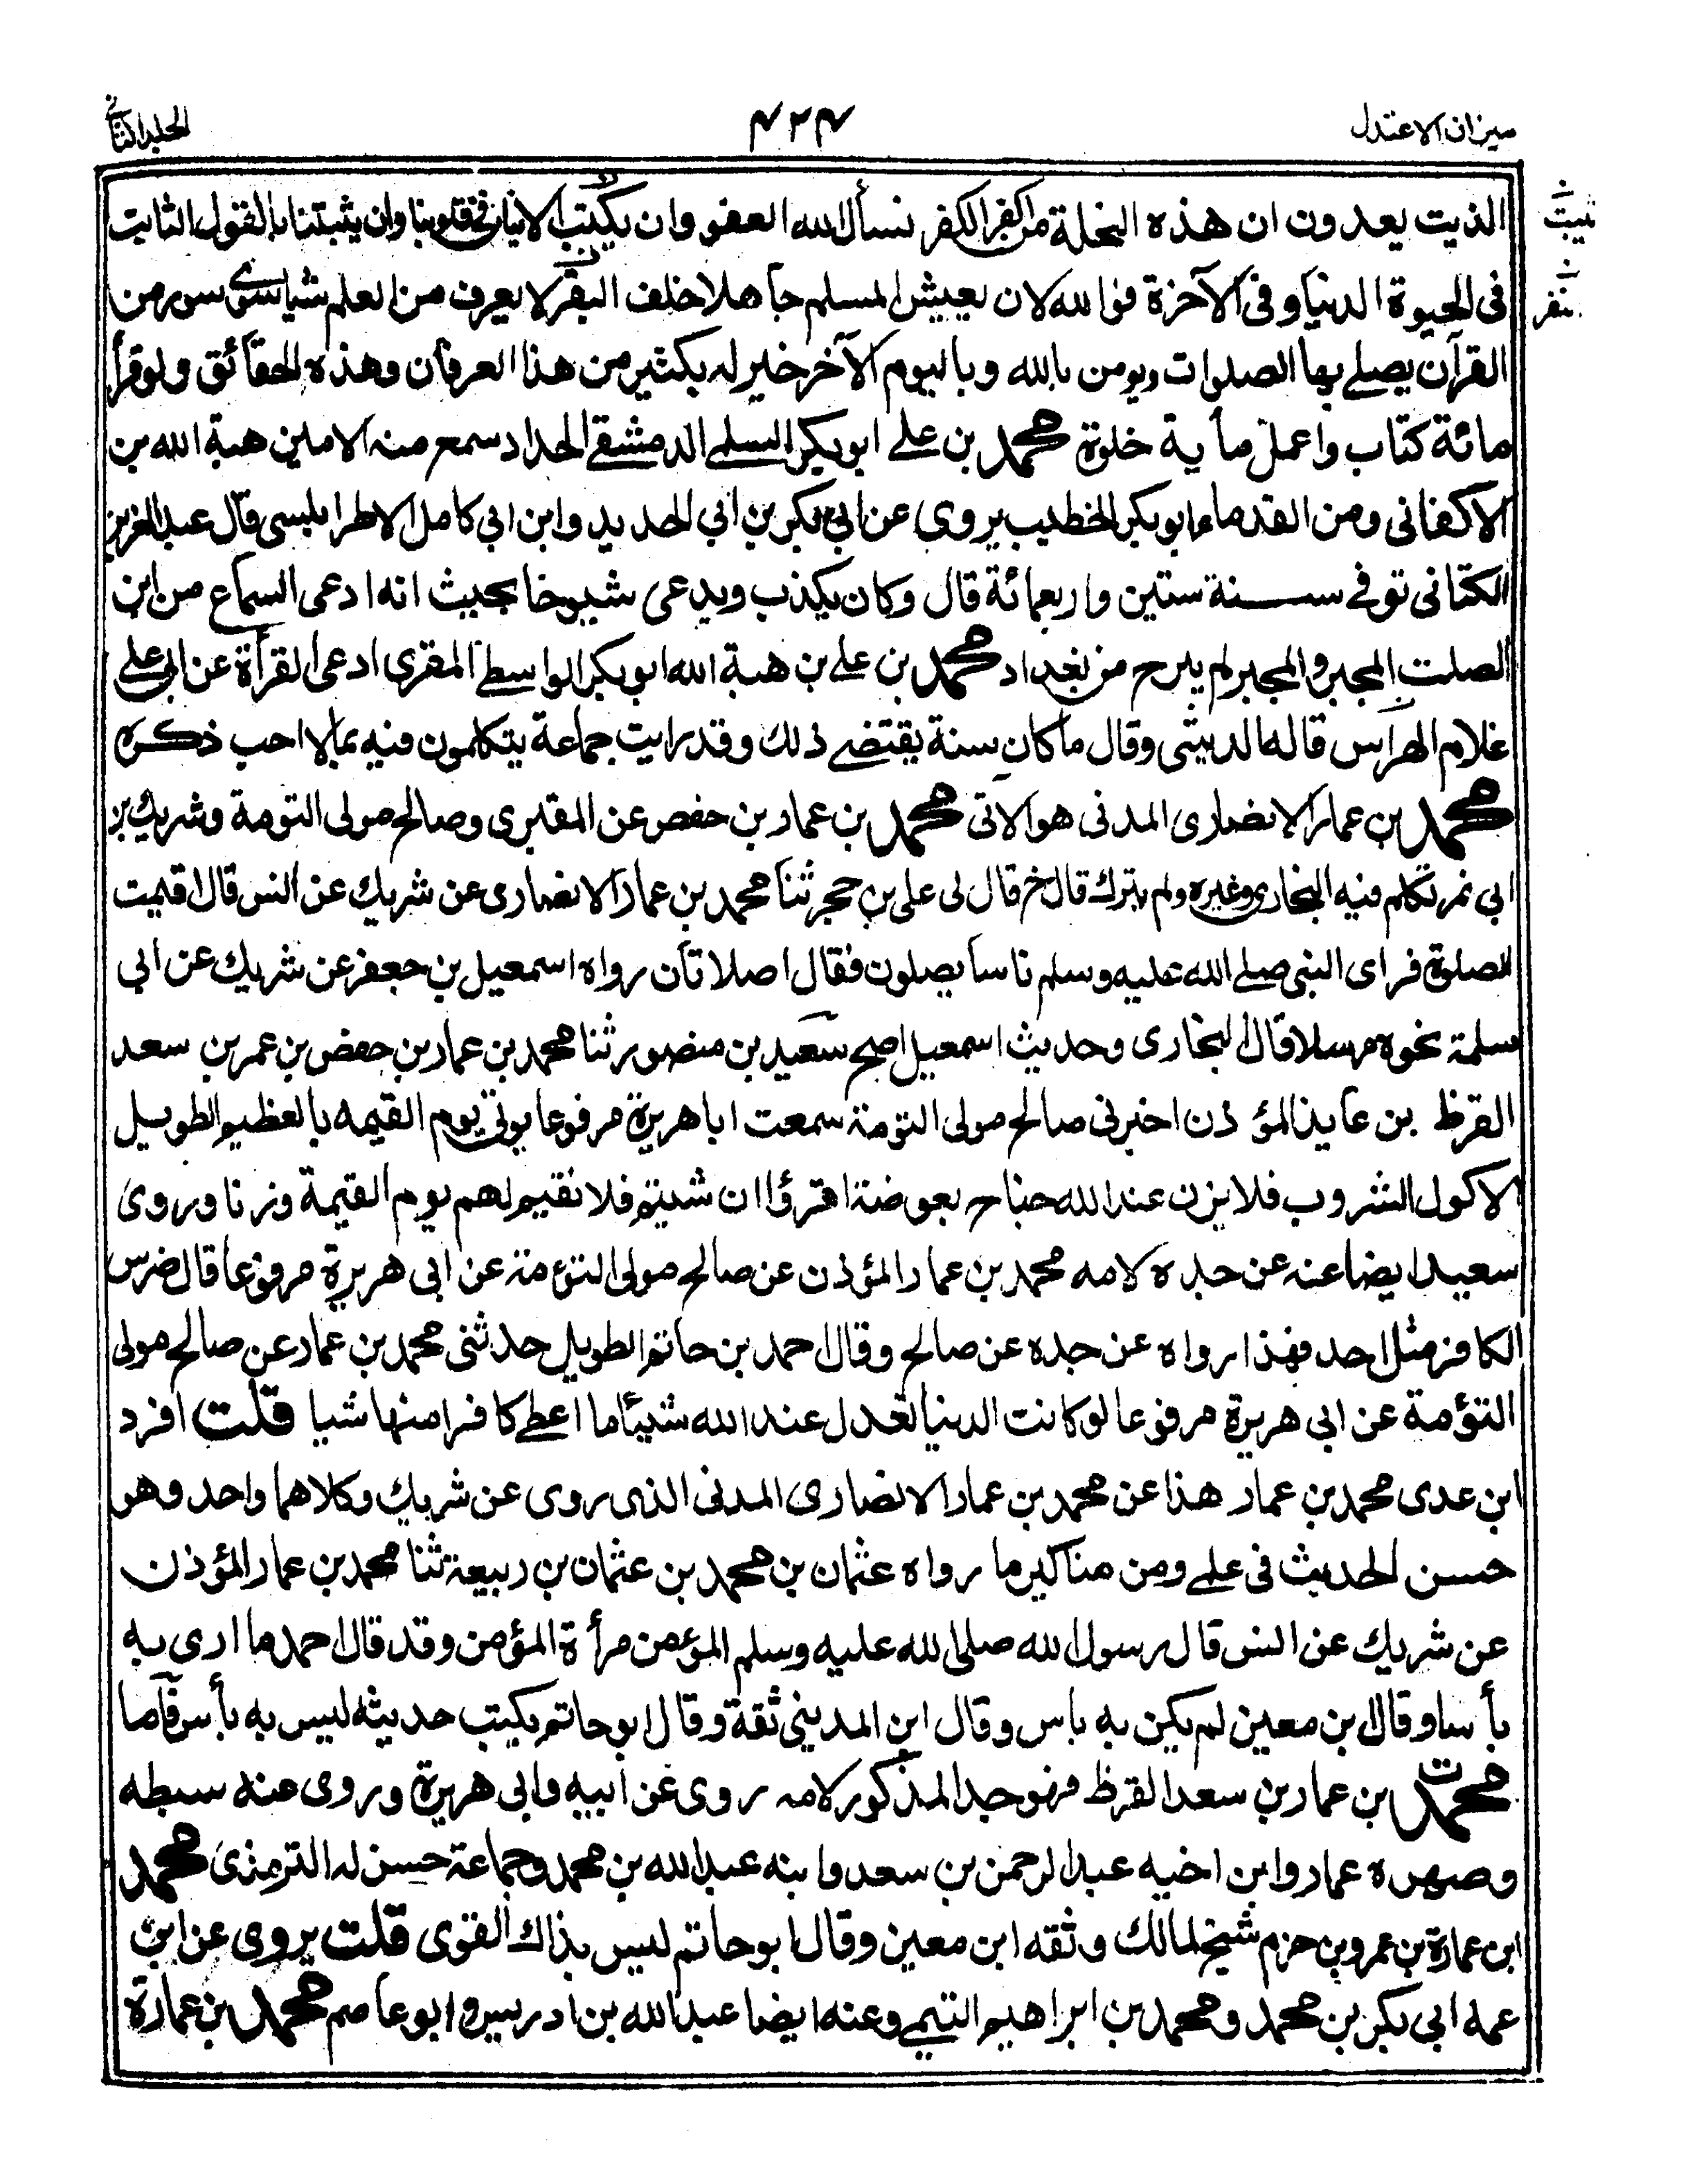 ميزان الاعتدل
٤٢٤
الجلد الثاني
الذيت يعدون ان هذه النحلة من اكفر الكفر نسأل الله العفو وان يكتب الايمان في قلوبنا وان يثبتنا بالقول الثابت
في الحيوة الدنيا وفي الآخرة فوالله لان يعيش المسلم جاهلا خلف البقر لا يعرف من العلم شيا سوى سور من
القرآن يصلي بها الصلوات ويومن بالله وباليوم الآخر خير له بكثير من هذا العرفان وهذه الحقائق ولو قرأ
مائة كتاب واعمل مأية خلوة محمد بن علي ابو بكر السلمي الدمشقي الحداد سمع منه الامين هبة الله بن
الاكفانى ومن القدماء ابو بكر الخطيب يروى عن ابي بكر بن ابي الحديد وابن ابي كامل الاطرابلسى قال عبد العزيز
الكتانى توفى سنة ستين واربعمائة قال وكان يكذب ويدعى شيوخا بحيث انه ادعى السماع من ابن
الصلت المجبر والمجبر لم يبرح من بغداد محمد بن علي بن هبة الله ابو بكر الواسطي المقرى ادعى القرأة عن ابي علي
غلام الهراس قاله الدبيثى وقال ما كان سنة يقتضي ذلك وقد رايت جماعة يتكلمون فيه بما لا احب ذكره
محمد بن عمار الانصارى المدنى هو الآتى محمد بن عمار بن حفص عن المقبرى وصالح مولى التومة وشريك بن
ابي نمر تكلم فيه البخارى وغيره ولم يترك قال خ قال لى على بن حجر ثنا محمد بن عمار الانصارى عن شريك عن انس قال اقيمت
الصلوة فراى النبى صلى الله عليه وسلم ناسا يصلون فقال اصلاتان رواه اسمعيل بن جعفر عن شريك عن ابي
سلمة نحوه مرسلا قال البخارى وحديث اسمعيل اصح سعيد بن منصور ثنا محمد بن عمار بن حفص بن عمر بن سعد
القرظ بن عايذ المؤذن اخبرنى صالح مولى التومة سمعت ابا هريرة مرفوعا يوتى يوم القيمه بالعظيم الطويل
الاكول الشروب فلا يزن عند الله جناح بعوضة اقرؤا ان شيتم فلا نقيم لهم يوم القيمة وزنا وروى
سعيد ايضا عنه عن جده لامه محمد بن عمار المؤذن عن صالح مولى التؤمة عن ابى هريرة مرفوعا قال ضرس
الكافر مثل احد فهذا رواه عن جده عن صالح وقال احمد بن حاتم الطويل حدثنى محمد بن عمار عن صالح مولى
التؤمة عن ابى هريرة مرفوعا لو كانت الدنيا تعدل عند الله شيئا ما اعطي كافرا منها شيا قلت افرد
ابن عدى محمد بن عمار هذا عن محمد بن عمار الانصارى المدنى الذى روى عن شريك وكلاهما واحد وهو
حسن الحديث فى علمي ومن مناكير ما رواه عثمان بن محمد بن عثمان بن ربيعة ثنا محمد بن عمار المؤذن
عن شريك عن انس قال رسول الله صلى الله عليه وسلم المؤمن مرأة المؤمن وقد قال احمد ما ارى به
بأسا وقال بن معين لم يكن به باس وقال ابن المديني ثقة وقال ابو حاتم يكتب حديثه ليس به بأس فآما
محمد بن عمار بن سعد القرظ فهو جد المذكور لامه روى عن ابيه وابى هريرة وروى عنه سبطه
وصهره عمار وابن اخيه عبد الرحمن بن سعد وابنه عبد الله بن محمد وجماعة حسن له الترمذى محمد
ابن عمارة بن عمرو بن حزم شيخ لمالك وثقه ابن معين وقال ابو حاتم ليس بذاك القوى قلت يروى عن ابن
عمه ابي بكر بن محمد ومحمد بن ابراهيم التيمي وعنه ايضا عبد الله بن ادريس وابو عاصم محمد بن عمارة